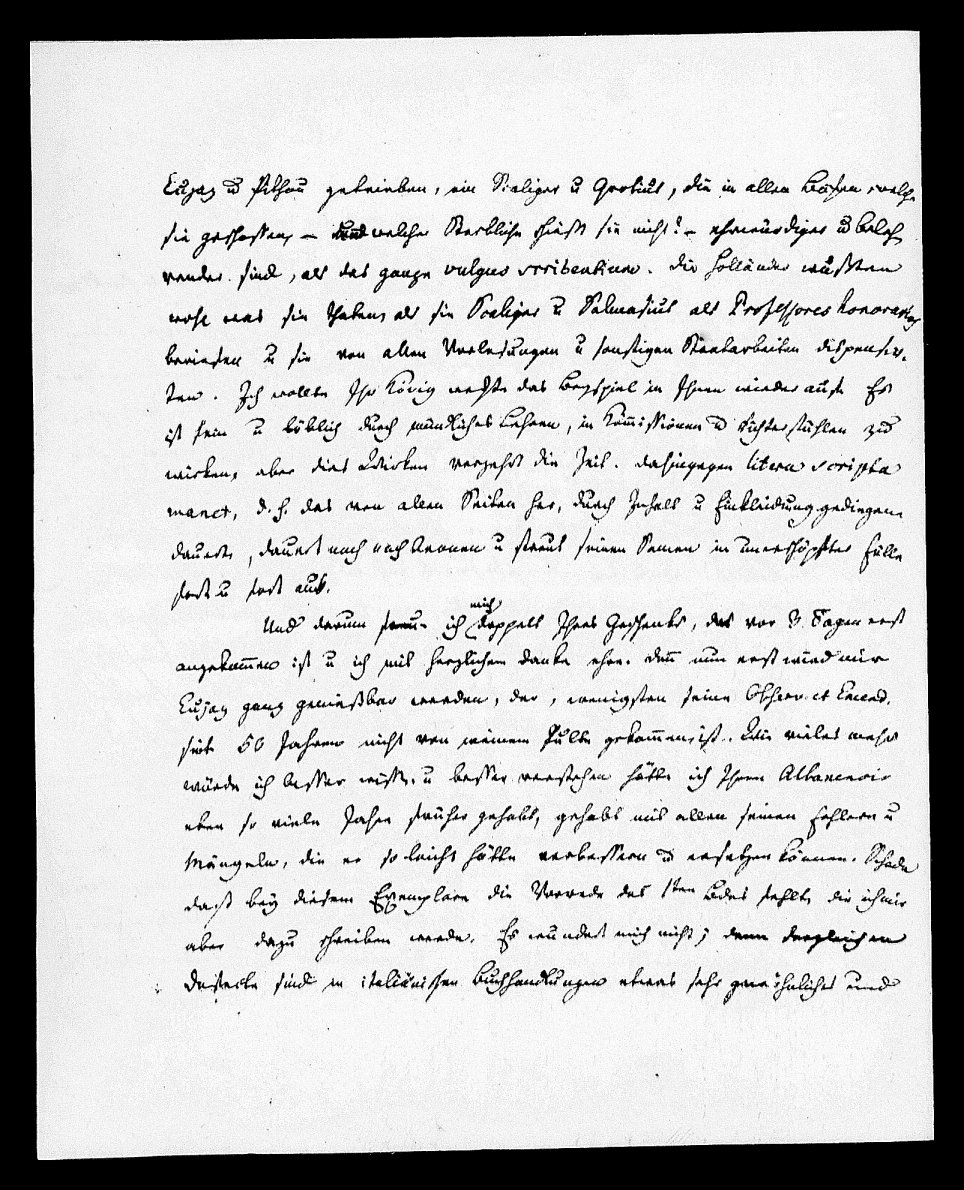 Cujaz u Pithou getrieben, ein Scaliger u Grotius, die in allen Bösen, welche
sie geschossen, – und welcher Sterbliche schießt sie nicht? – ehrwürdiger u beleh
render sind, als das ganze vulgus scribentium. Die Holländer wußten
wohl was sie thaten, als sie Scaliger u Salmasius als Professores honorarios
beriefen u sie von allen Vorlesungen u sonstigen Staatsarbeiten dispensir-
ten. Ich wollte Ihr König machte das Beyspiel in Ihnen wieder auf. Es
ist fein u löblich durch mündliches Lehren, in Kommissionen u Richterstühlen zu
wirken, aber dies Wirken verzehrt die Zeit. Dahingegen litera scripta
manet, d. h. das von allen Seiten her, durch Inhalt u Einkleidung gediegene
dauert, dauert nach nach Aeonen u streut seinen Samen in unerschöpfter Fülle
fort u fort aus.
Und darum freue ich mich doppelt Ihres Geschenks, das vor 3 Tagen erst
angekommen ist u ich mit herzlichem Danke ehre. Denn nun erst wird mir
Cujaz ganz genießbar werden, der, wenigsten seine Observ. et Emend.
seit 50 Jahren nicht von meinem Pulte gekommen ist. Wie vieles mehr
würde ich besser wissen u besser verstehen hätte ich Ihren Albanenoir
eben so viele Jahre früher gehabt, gehabt mit allen seinen Fehlern u
Mängeln, die er so leicht hätte verbessern u ersetzen können. Schade
daß bey diesem Exemplare die Vorrede des 1ten Bdes fehlt, die ich mir
aber dazu schreiben werde. Es wundert mich nicht; denn dergleichen
Defecte sind in italiänischen Buchhandlungen etwas sehr gewöhnliches und